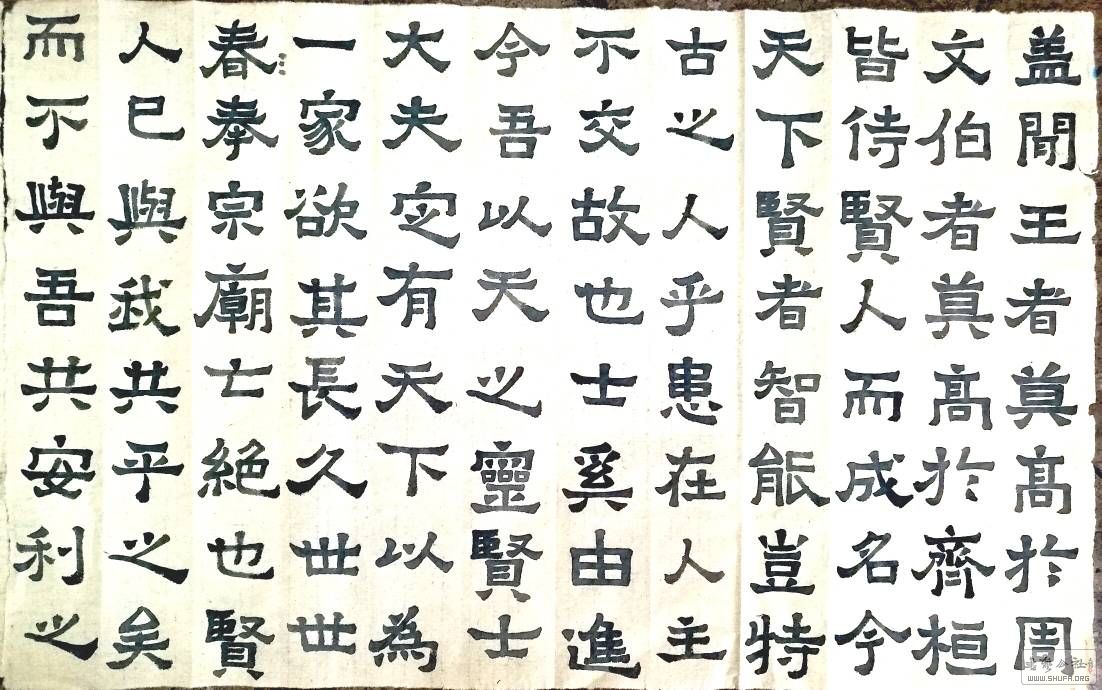 盖聞王者莫高於周
文伯者莫高於齊桓
皆侍賢人而成名今
天下賢者智能豈特
古之人乎患在人主
不交故也士奚由進
今吾以天之靈賢士
大夫定有天下以為
一家欲其長久世世
春奉宗廟亡絶也賢
人已與我共平之矣
而不與吾共安利之
WWW.SHUFA.ORG